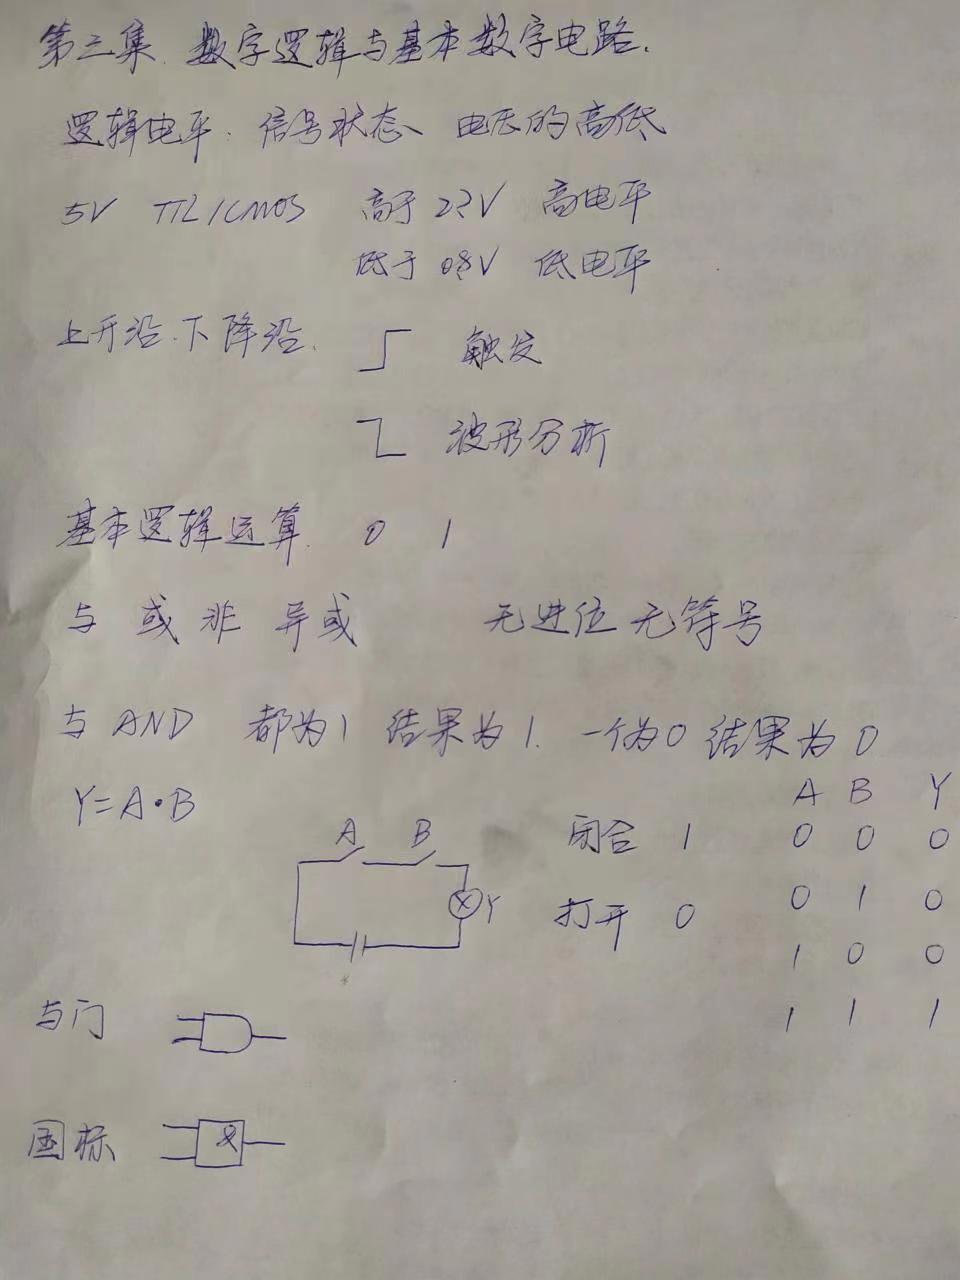 第三集. 数字逻辑与基本数字电路.
逻辑电平. 信号状态 电压的高低
5V TTL/CMOS 高于2.2V 高电平
低于0.8V 低电平
上升沿.下降沿. 触发
波形分析
基本逻辑运算. 0 1
与 或 非 异或 无进位 无符号
与 AND 都为1 结果为1. 一个为0 结果为0
Y=A·B
A B Y
闭合 1 0 0 0
A B
打开 0 0 1 0
Y
1 0 0
与门 1 1 1
国标 &